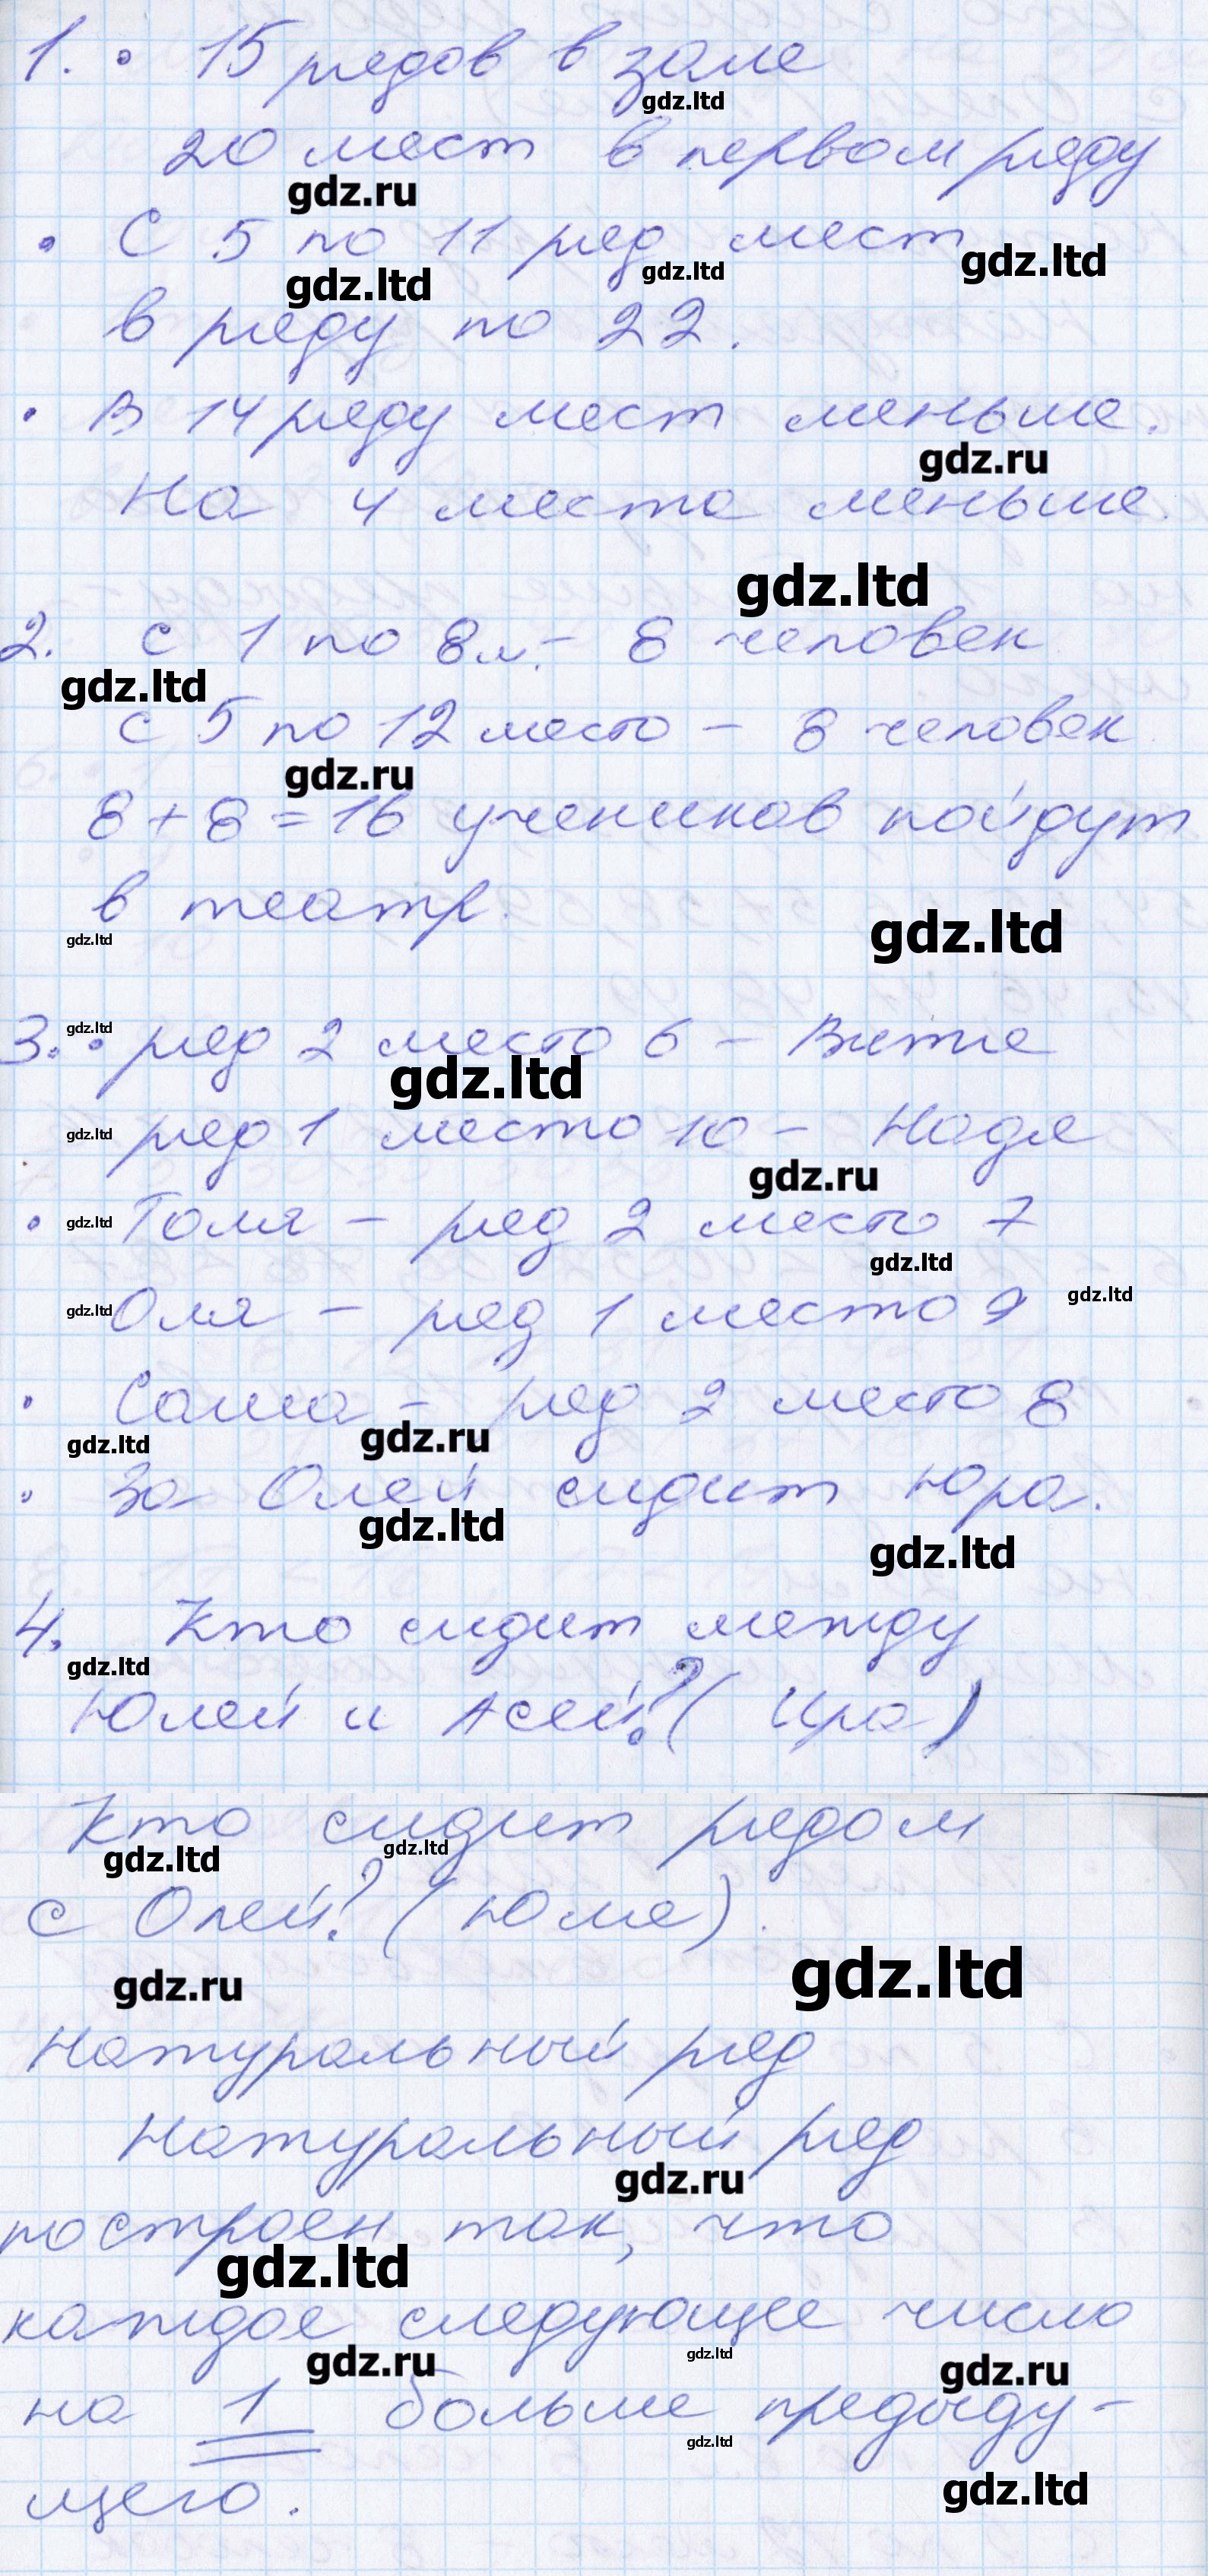 1. • 15 рядов в зале
gdz.ltd
20 мест в первом ряду
gdz.ru
• С 5 по 11 ряд мест
gdz.ltd gdz.ltd gdz.ltd
в ряду по 22.
• В 14 ряду мест меньше.
gdz.ru
На 4 места меньше.
gdz.ltd
2. с 1 по 8 м. – 8 человек
gdz.ltd
с 5 по 12 место – 8 человек
gdz.ru
8 + 8 = 16 учеников пойдут
в театр.
gdz.ltd gdz.ltd
3. • ряд 2 место 6 – Витя
gdz.ltd gdz.ltd
ряд 1 место 10 – Надя
gdz.ltd gdz.ru
• Толя – ряд 2 место 7
gdz.ltd gdz.ltd
Оля – ряд 1 место 9
gdz.ltd gdz.ltd
• Саша – ряд 2 место 8
gdz.ltd gdz.ru
• За Олей сидит Юра.
gdz.ltd gdz.ltd
4. Кто сидит между
gdz.ltd
Юлей и Асей? (Ира)
Кто сидит рядом
gdz.ltd gdz.ltd
с Олей? (Юля).
gdz.ru gdz.ltd
Натуральный ряд
Натуральный ряд
gdz.ru
построен так, что
gdz.ltd
каждое следующее число
gdz.ru gdz.ltd gdz.ru
на 1 больше предыду-
gdz.ltd gdz.ltd
щего.